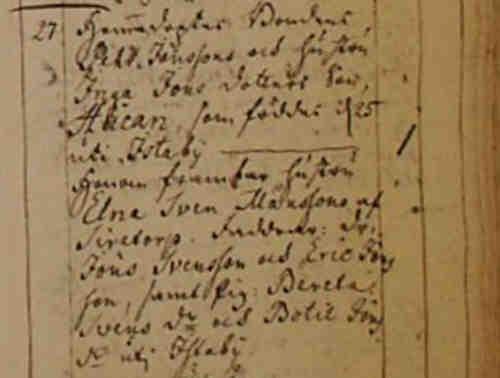 27 Hemdöptes Bondens
Pehr Jönssons och hustru
Inga Jons dotters Son,
Håcan, som föddes d 25
uti Istaby
Honom frambar hustru
Elna Sven Månssons af
Siretorp. Faddrar: Dr.
Jöns Svensson och Eric Jöns
son, samt Pig: Bereta
Svens Dr och Botil Jöns
Dr uti Istaby